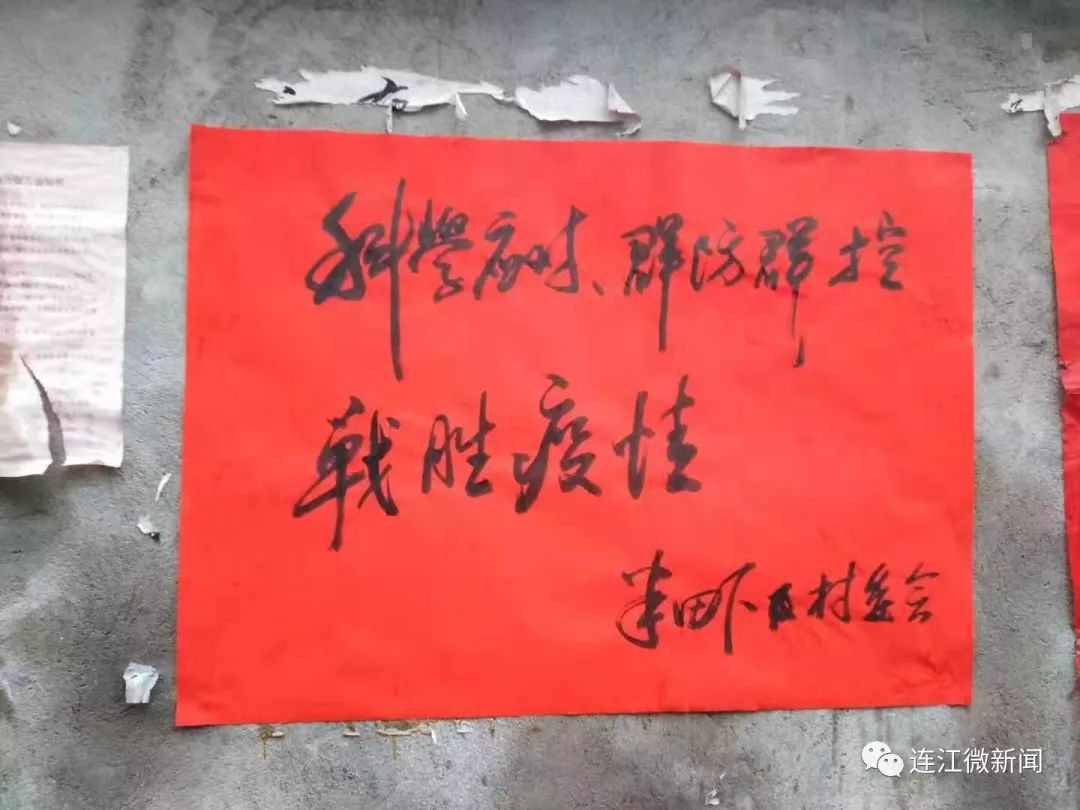 科學应对、群防群控
戰胜疫情
村委会
连江微新闻